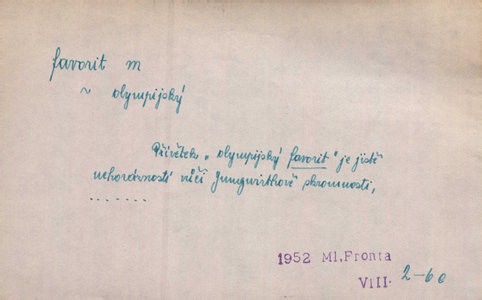 favorit m
~ olympijský
Přívětek „olympijský favorit" je jistě
nehorázností vůči Jungwirthově skromnosti,
.......
1952 Ml.Fronta
VIII. 2-6 c